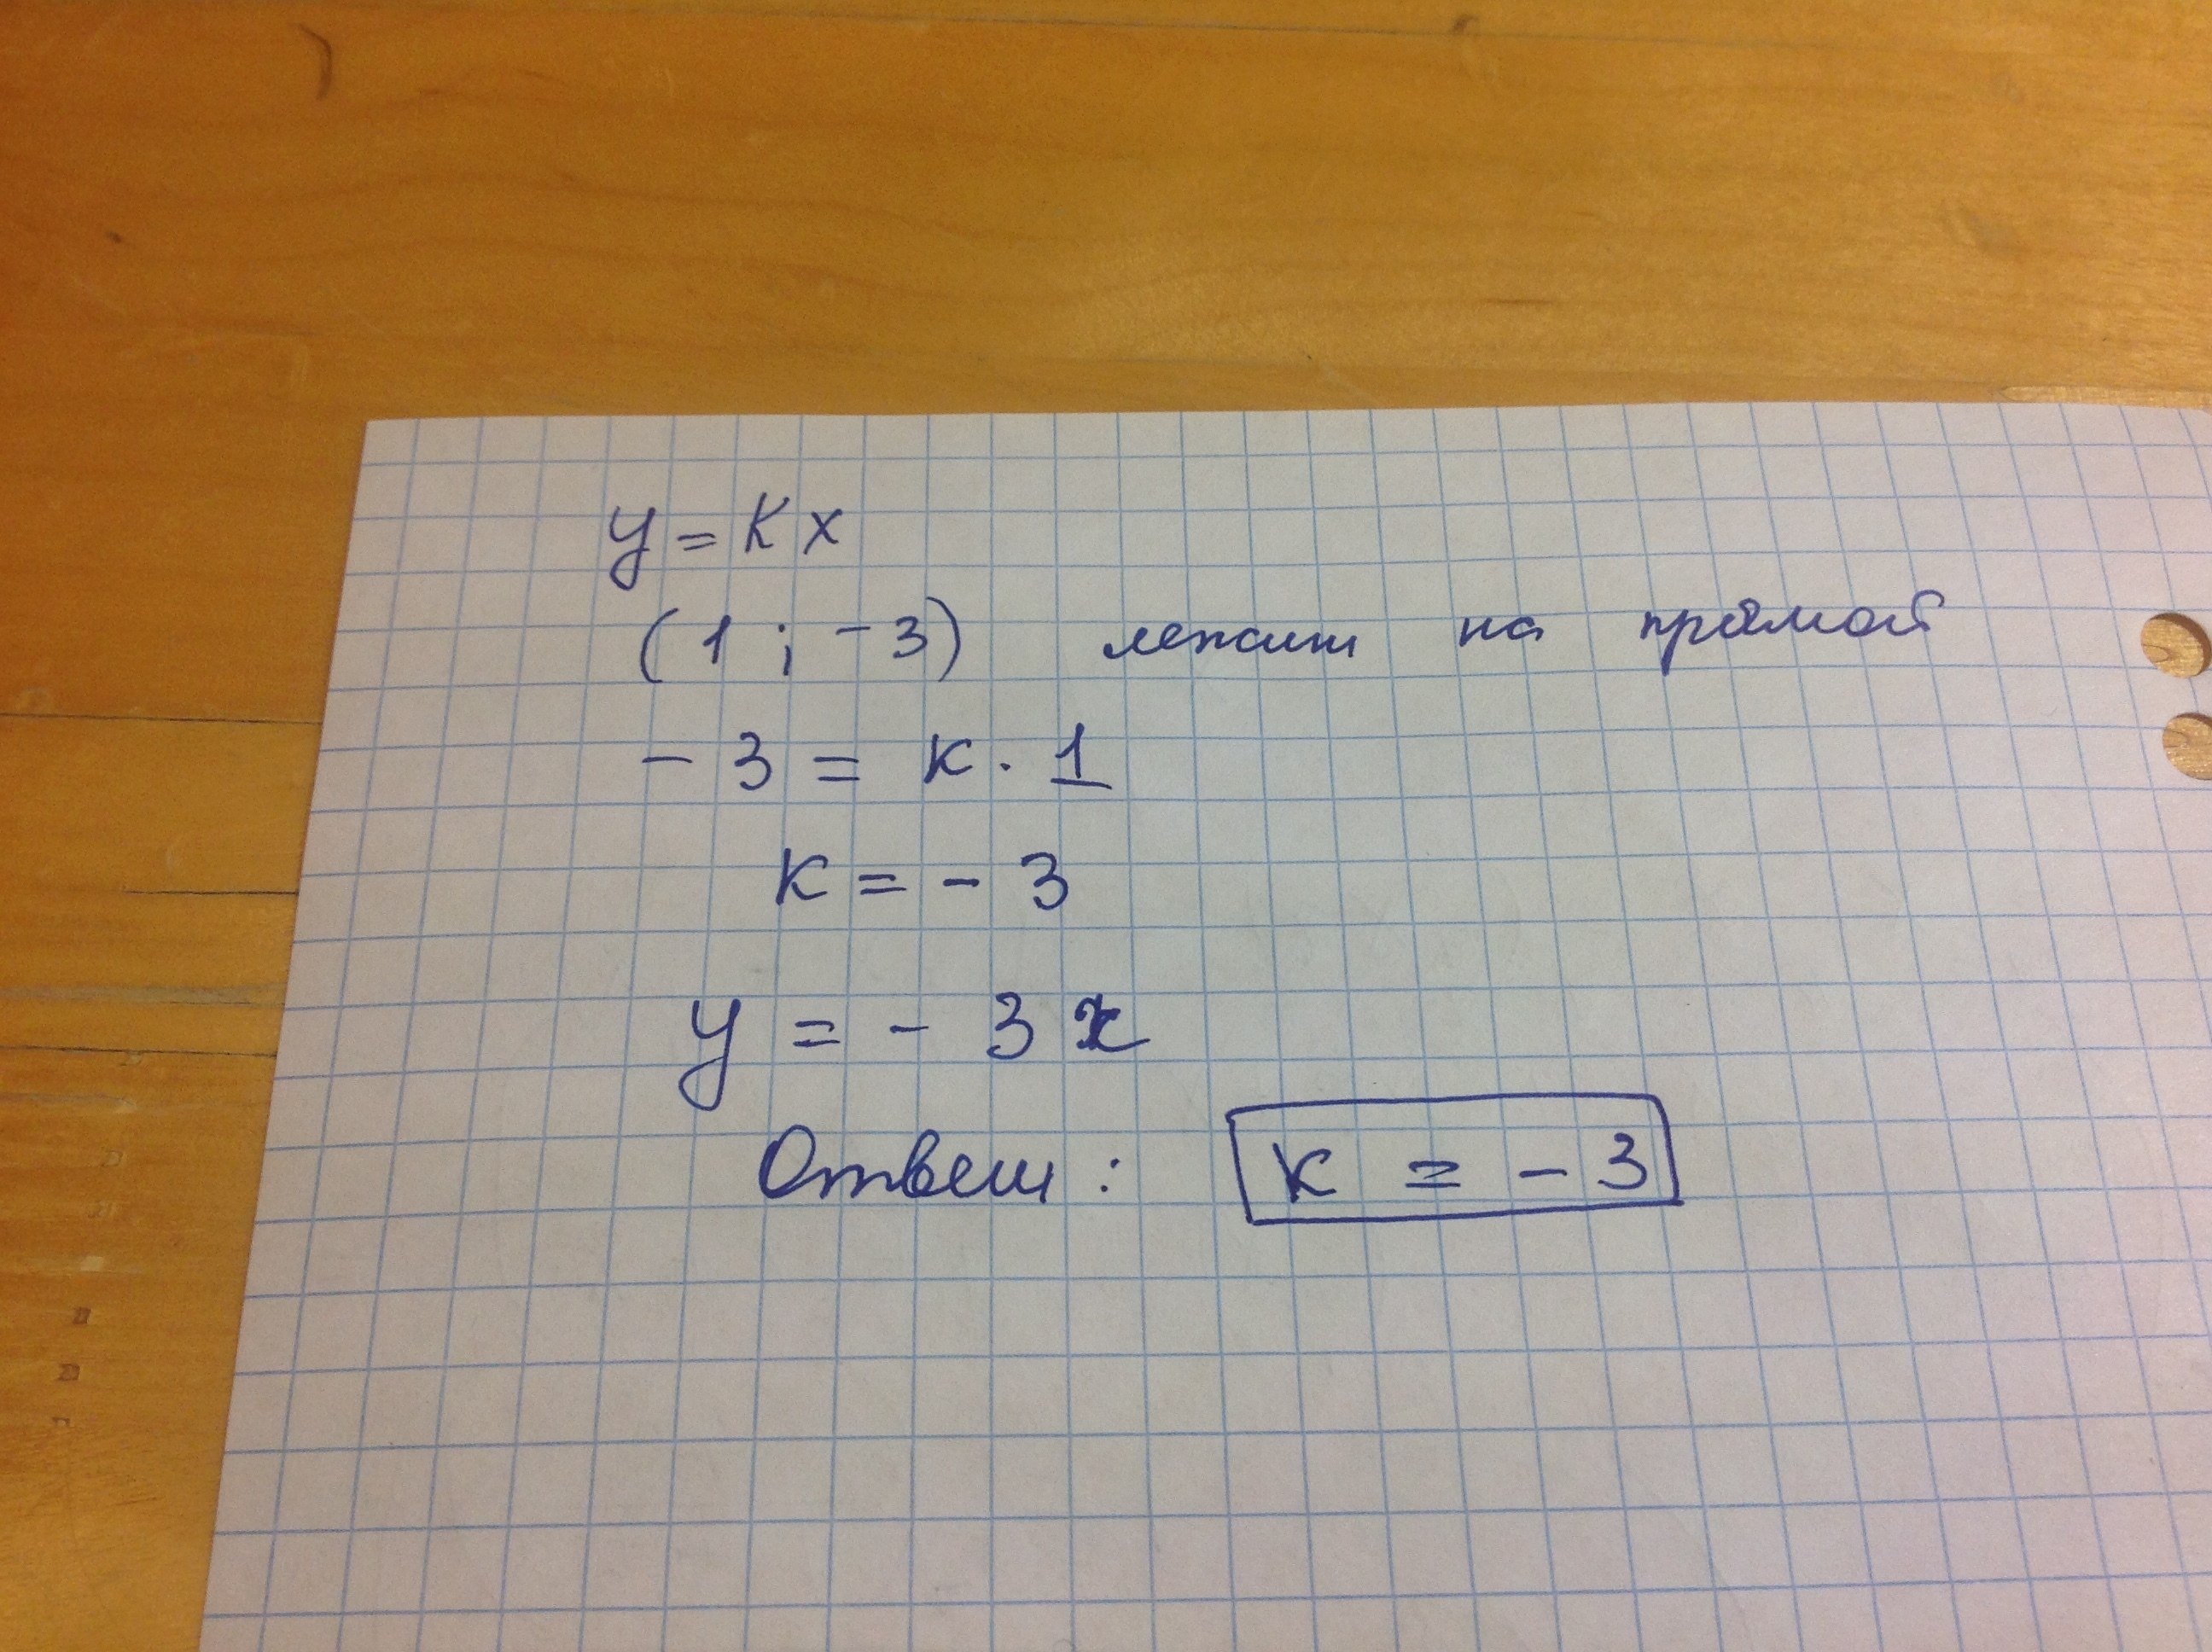 y = kx
(1 ; -3) лежит на прямой
- 3 = к · 1
к = - 3
y = - 3x
Ответ: к = - 3